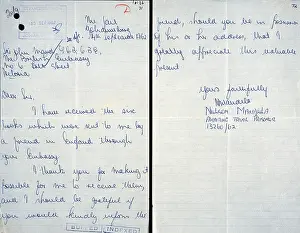 The Fort
Johannesburg
Dear Sir,
I have received the six
books which were sent to me by
a friend in England through
your Embassy.
I thank you for making it
possible for me to receive them,
and I should be grateful if
you would kindly inform the
friend, should you be in possession
of his or her address, that I
greatly appreciate this valuable
present
Yours faithfully
NMandela
NELSON MANDELA
AWAITING TRIAL PRISONER
13260/62
INDEXED